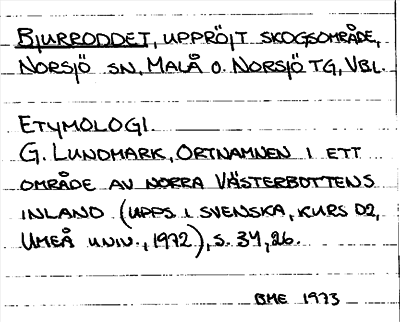 BJURRODDET, UPPRÖJT SKOGSOMRÅDE,
NORSJÖ SN, MALÅ O. NORSJÖ TG, VBL.
ETYMOLOGI.
G. LUNDMARK, ORTNAMNEN I ETT
OMRÅDE AV NORRA VÄSTERBOTTENS
INLAND (UPPS. I SVENSKA, KURS D2,
UMEÅ UNIV., 1972), S. 34, 26.
BME 1973